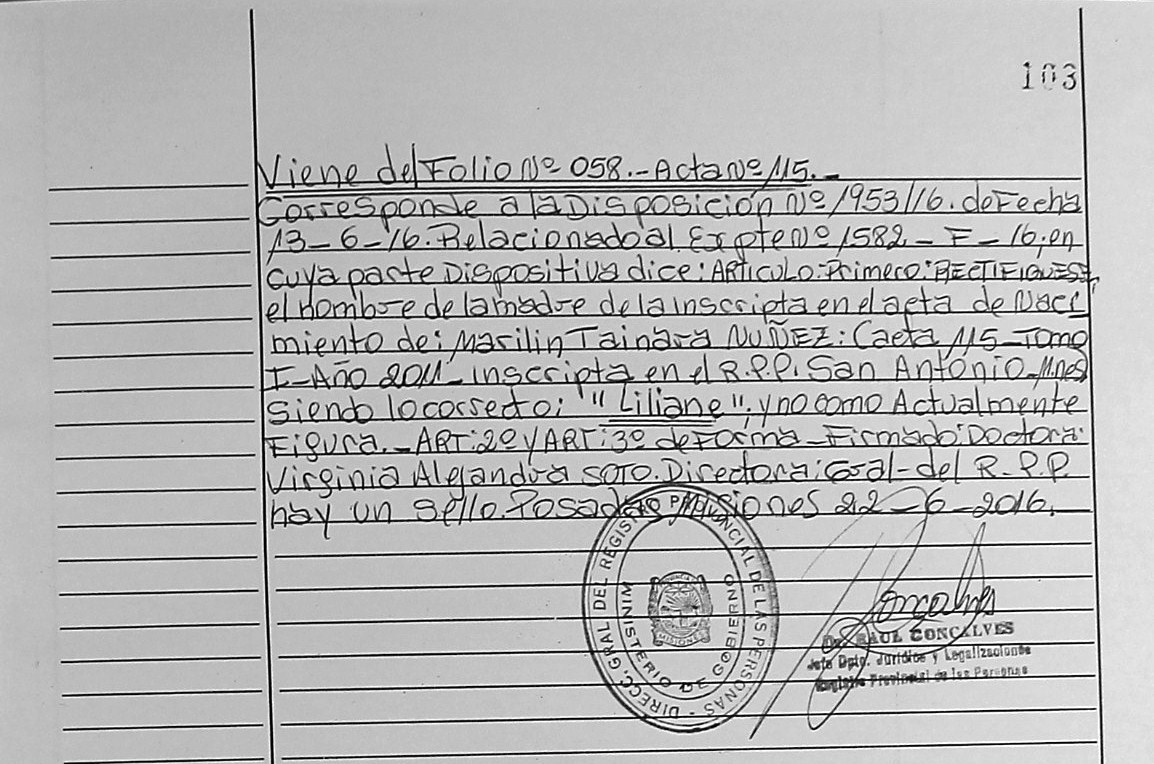 103
Viene del Folio Nº 058.- Acta Nº 115.-
Corresponde a la Disposición Nº 1953/16. de Fecha
13-6-16. Relacionado al Expte Nº 1582-F-16, en
cuya parte Dispositiva dice: ARTICULO: Primero: RECTIFIQUESE,
el nombre de la madre de la inscripta en el acta de Naci
miento de: Marilin Tainara NUÑEZ: Caeta 115-Tomo
I-Año 2011- inscripta en el R.P.P. San António-Mnes
siendo lo correcto; "Liliane", y no como Actualmente
Figura.- ART: 2º y ART: 3º de Forma-Firmado: Doctora:
Virginia Alejandra SOTO. Directora: Gral-del R.P.P.
hay un sello. Posadas Misiones 22-6-2016.
DIRECC. GRAL DEL REGISTRO PROVINCIAL DE LAS PERSONAS -
MINISTERIO DE GOBIERNO
MISIONES
Gonçalves
Dr. RAUL GONCALVES
Jefe Dpto. Jurídico y Legalizaciones
Registro Provincial de las Personas